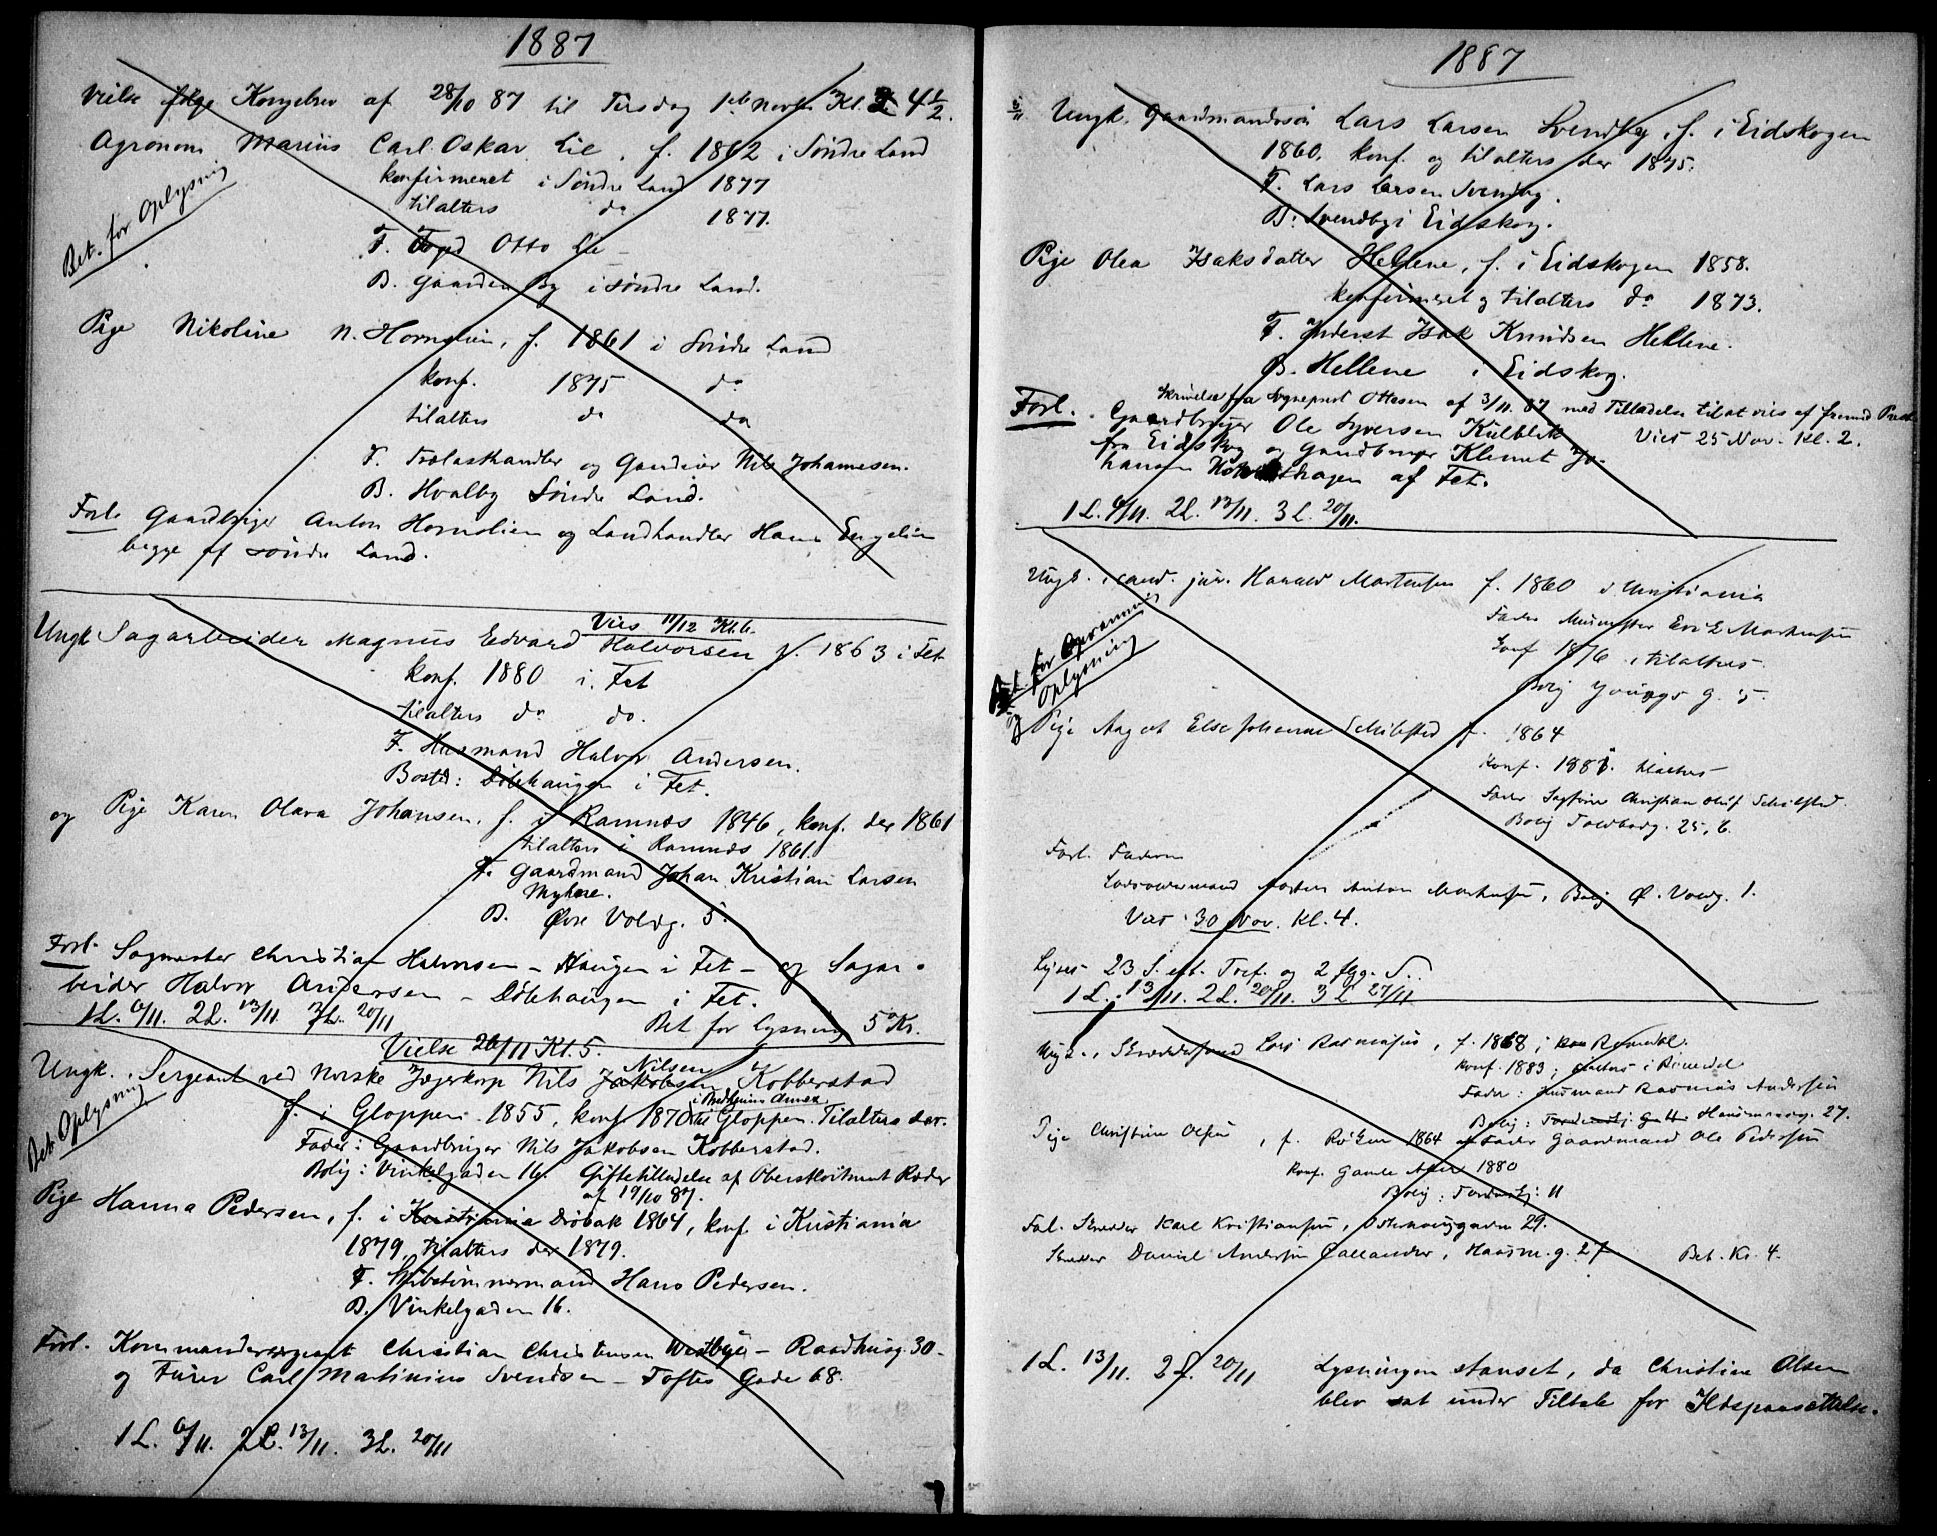 1887
Vielse ifølge Kongebrev af 28/10 87 til Tirsdag 1ste Novbr. Kl. 4 1/2.
Agronom Marius Carl Oskar Lie, f. 1862 i Søndre Land
konfirmeret i Søndre Land 1877
tilalters do 1877.
Bet. for Oplysning
F. Foged Otto Lie
B. Gaarden By i Søndre Land.
Pige Nikoline N. Hornslien, f. 1861 i Søndre Land
konf. 1875 do
tilalters do do
F. Trælasthandler og Gaardeier Nils Johannesen.
B. Hvalby Søndre Land.
Forl. Gaardbruger Anton Hornslien og Landhandler Hans Engelien
begge af Søndre Land.
Vies 11/12 Kl. 6.
Ungk. Sagarbeider Magnus Edvard Halvorsen f. 1863 i Fet
konf. 1880 i Fet
tilalters do do.
F. Husmand Halvor Andersen.
Bosted: Dølehaugen i Fet.
og Pige Karen Olava Johansen, f. i Ramnæs 1846, konf. der 1861
tilalters i Ramnæs 1861.
F. Gaardmand Johan Kristian Larsen
Myhre.
B. Øvre Voldg. 5.
Forl. Sagmester Christian Halvorsen – Haugen i Fet – og Sagar-
beider Halvor Andersen – Dølehaugen i Fet.
1 L. 6/11. 2 L. 13/11 3 L. 20/11 Bet for Lysning 5 Kr.
Vielse 26/11 Kl. 5.
Ungk., Sergeant ved Norske Jægerkorp Nils Jakobsen Nilsen Kobberstad
f. i Gloppen 1855, konf. 1870 i Bredheims Annex til Gloppen. Tilalters der.
Bet. Oplysning
Fader: Gaardbruger Nils Jakobsen Kobberstad.
Bolig: Vinkelgaden 16. Giftetilladelse af Oberstløitnant Ræder
af 19/10 87.
Pige Hanna Pedersen, f. i Kristiania Drøbak 1864, konf. i Kristiania
1879, tilalters der 1879.
F. Skibstømmermand Hans Pedersen.
B. Vinkelgaden 16.
Forl. Kommandersergeant Christian Christensen Westbye – Raadhusg. 30 –
og Furer Carl Martinius Svendsen – Toftes Gade 68.
1 L. 6/11. 2 L. 13/11. 3 L. 20/11
1887
Ungk. Gaardmandssøn Lars Larsen Svendby, f. i Eidskogen
1860, konf. og tilalters der 1875.
F. Lars Larsen Svendby.
B: Svendby i Eidskog.
Pige Olea Isaksdatter Hellene, f. i Eidskogen 1858.
konfirmeret og tilalters do 1873.
F. Inderst Isak Knudsen Hellene.
B. Hellene i Eidskog.
Skrivelse fra Sogneprest Ottesen af 3/11 87 med Tilladelse til at vies af fremmed Prest
Forl. Gaardbruger Ole Syversen Kulblik Vies 25 Nov. Kl. 2.
fra Eidskog og Gaardbruger Klemet Jo-
hansen af Fet.
1 L. 6/11. 2 L. 13/11. 3 L. 20/11.
Ungk., cand. jur. Harald Mortensen f. 1860 i Christiania
Fader Murmester Erik Mortensen
Konf 1876, tilalters
Bolig Youngs g. 5
Bet. for Oplysning
og Pige Aagot Else Johanne Schibsted f. 1864
Konf. 1881. tilalters
Fader Christian Oluf Schibsted.
Bolig Toldbodg. 25, 6.
Forl. Faderen
Morten Anton Mortensen, Bolig Ø. Voldg. 1.
Vies 30 Nov. Kl. 4.
Lyses 23 S. eft. Tref. og 2 flg. S.
1 L. 13/11. 2 L. 20/11. 3 L 27/11
Ungk., Skræddersvend Lars Rasmussen, f. 1868 i Romedal.
Konf. 1883, tilalters i Romedal
Fader: Husmand Rasmus Andersen
Bolig: Hausmannsg. 27.
Pige Christine Olsen, f. Røken 1864 Fader Gaardmand Ole Pedersen
Konf. Gamle Aker 1880
Bolig: 11
Forl. Skrædder Karl Kristiansen, 29.
Skrædder Daniel Andersen Callander, Hausm. g. 27 Bet. Kr. 4.
1 L. 13/11. 2 L. 20/11 Lysningen stanset, da Christine Olsen
blev sat under Tiltale for Ildspaasættelse.